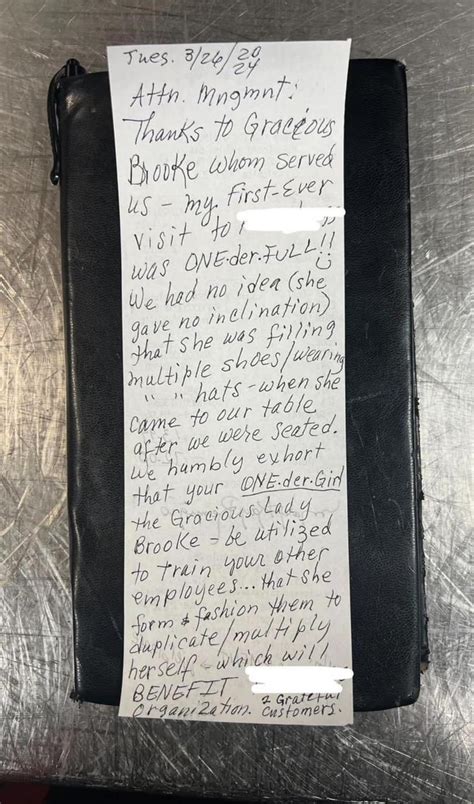 Tues. 3/26/2024
Attn. Mngmnt:
Thanks to Gracious
Brooke whom served
us - my first-Ever
visit to
was ONE.der.FULL!!
We had no idea (she
gave no inclination)
that she was filling
multiple shoes/wearing
" " hats - when she
came to our table
after we were seated.
We humbly exhort
that your ONE.der.Girl
the Gracious Lady
Brooke - be utilized
to train your other
employees... that she
form & fashion them to
duplicate/multiply
herself - which will
BENEFIT
organization. 2 Grateful
customers.